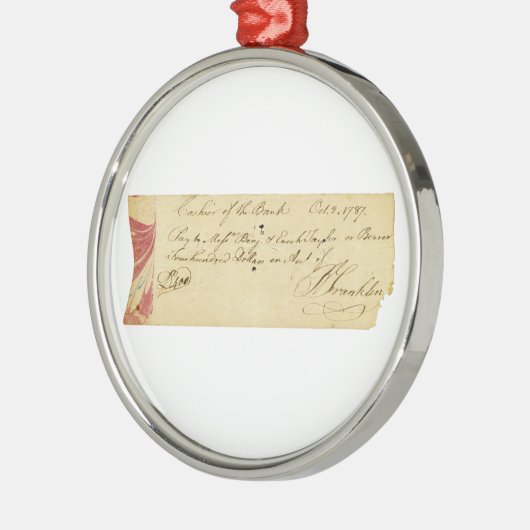 Cashier of the Bank Oct. 2. 1787.
Pay to Messrs. Benj. & Enoch Taylor or Bearer
Four hundred Dollars on Acct of
Ds400 B Franklin